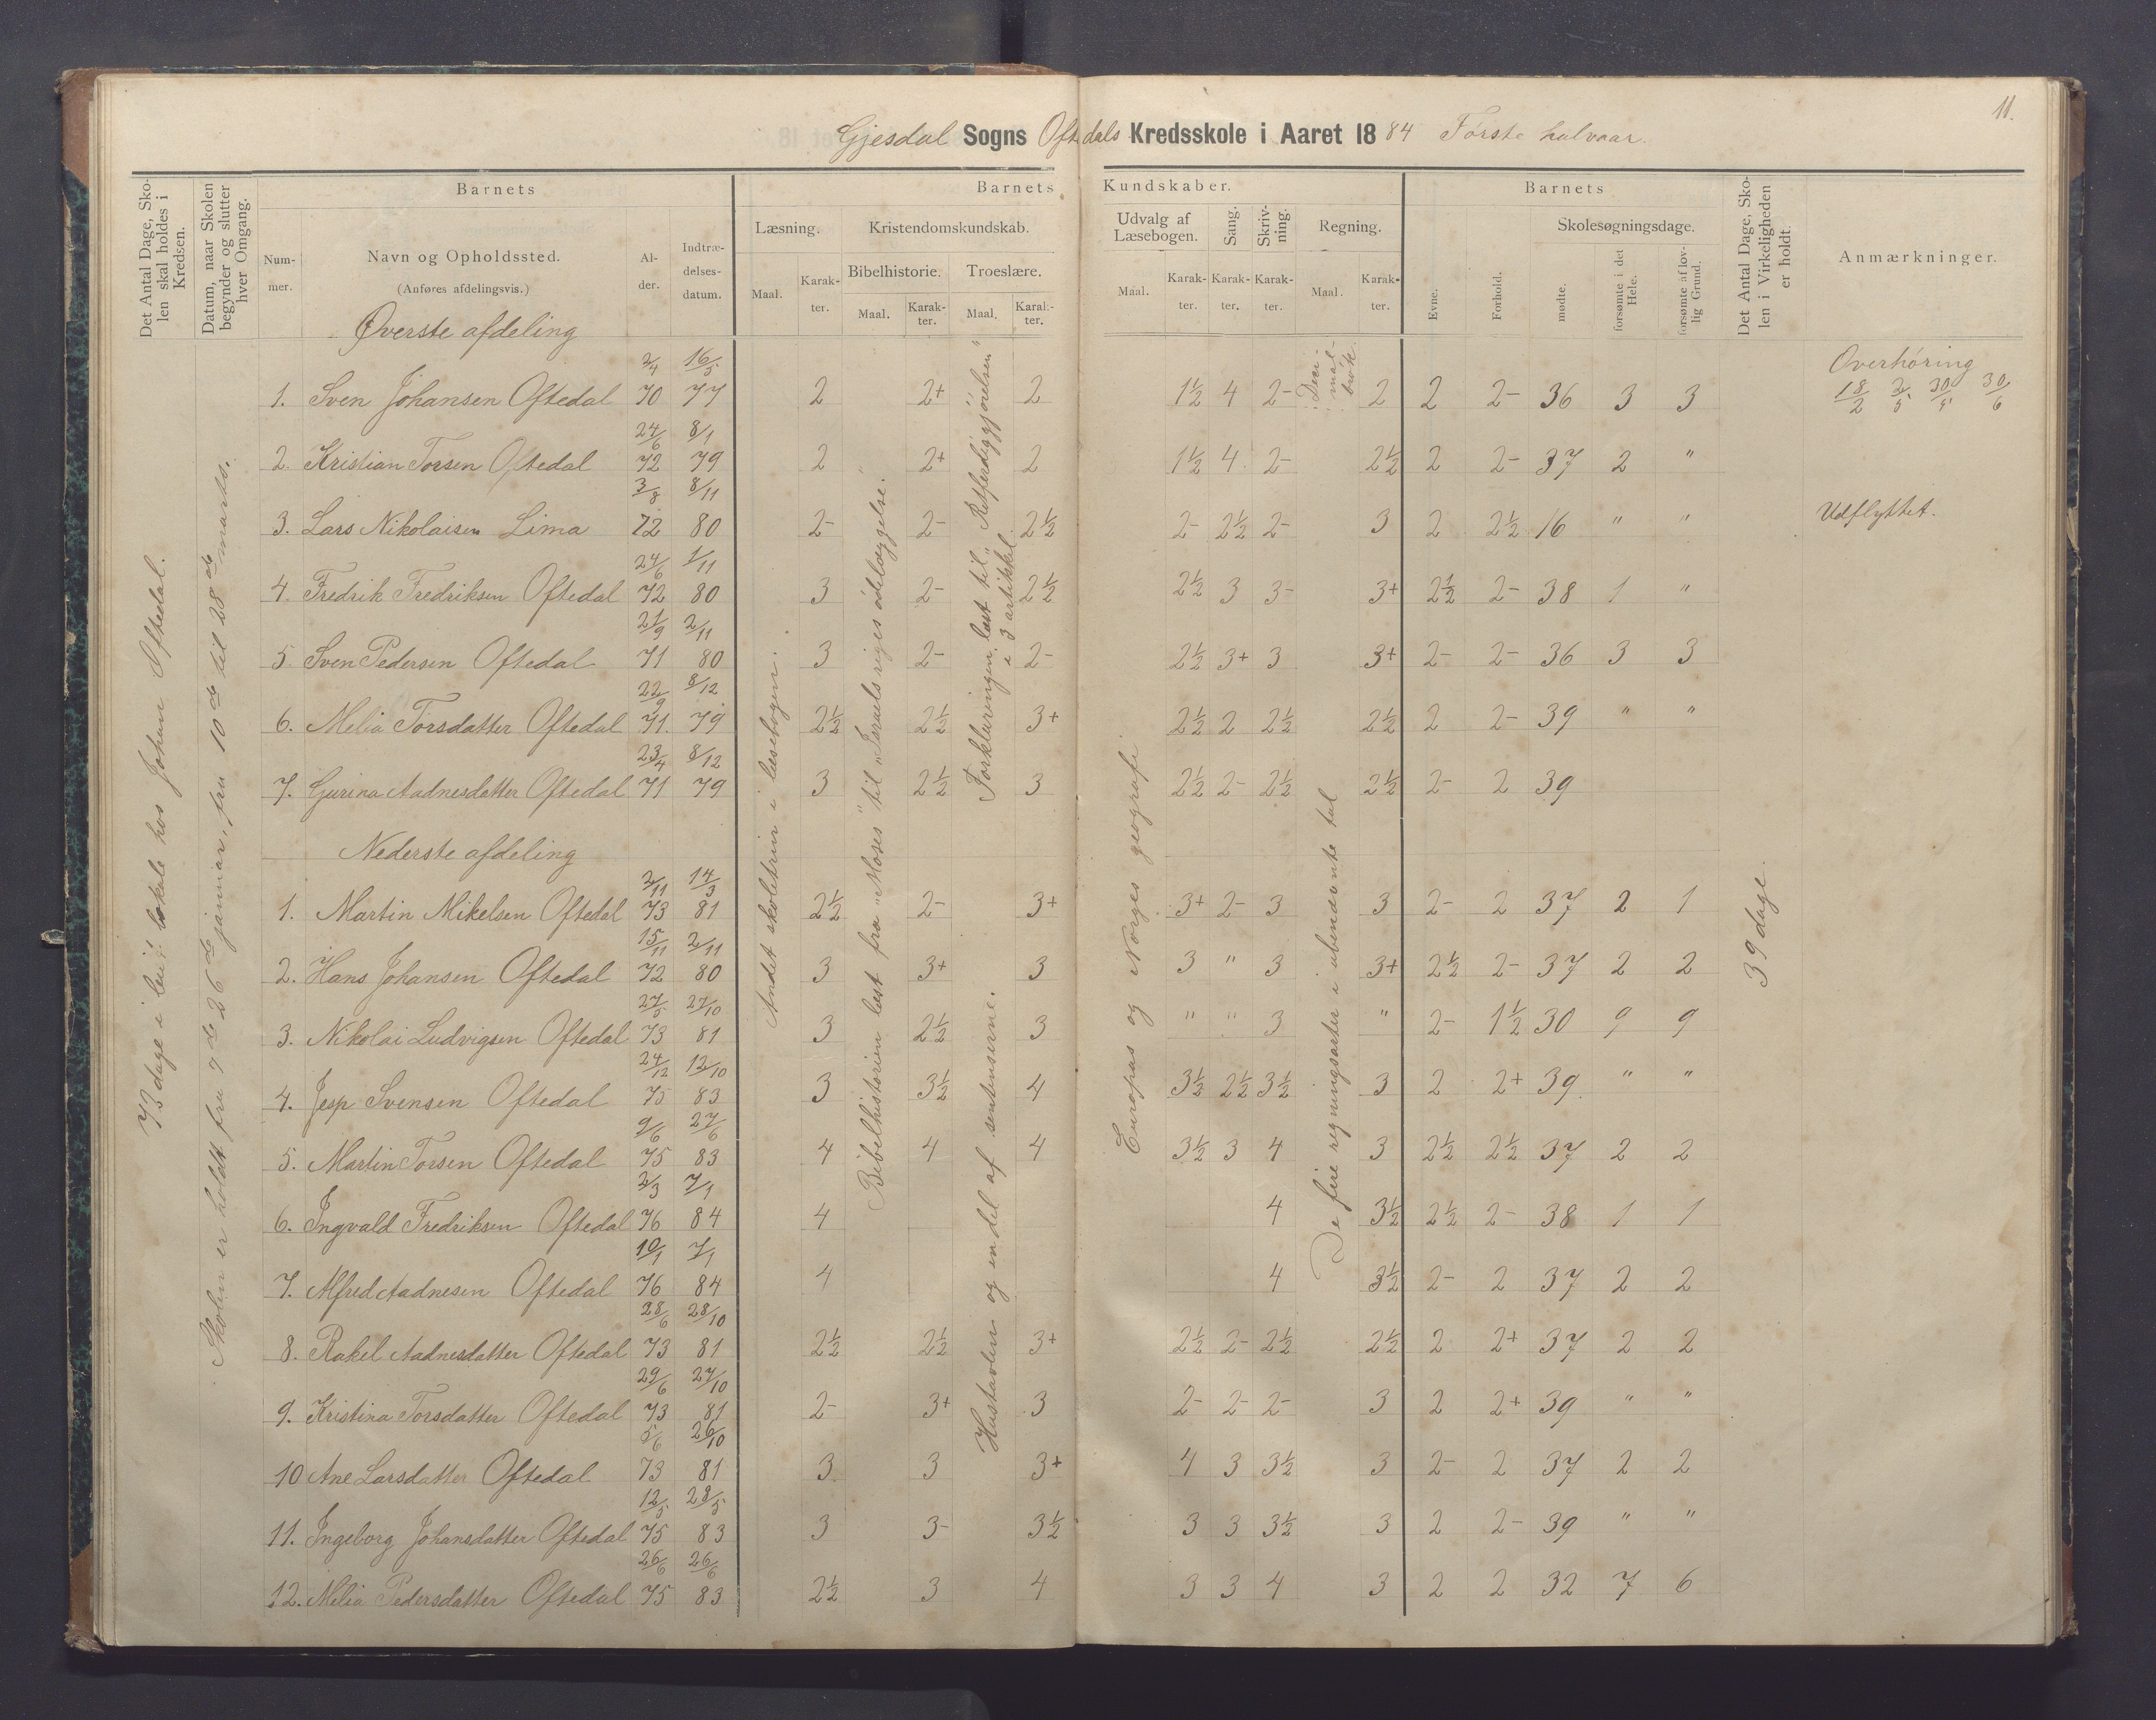 11.
Gjesdal Sogns Oftedals Kredsskole i Aaret 1884 Første halvaar.
Det Antal Dage, Skolen skal holdes i Kredsen.
Datum, naar Skolen begynder og slutter hver Omgang.
Barnets
Nummer.
Navn og Opholdssted.
(Anføres afdelingsvis.)
Alder.
Indtrædelsesdatum.
Barnets Kundskaber.
Læsning.
Maal. Karakter.
Kristendomskundskab.
Bibelhistorie. Troeslære.
Maal. Karakter. Maal. Karakter.
Udvalg af Læsebogen.
Maal. Karakter.
Sang. Karakter.
Skrivning. Karakter.
Regning.
Maal. Karakter.
Barnets
Evne. Forhold.
Skolesøgningsdage.
mødte. forsømte i det Hele. forsømte af lovlig Grund.
Det Antal Dage, Skolen i Virkeligheden er holdt.
Anmærkninger.
Øverste afdeling
1. Sven Johansen Oftedal 2/4 70 16/5 77 2 2+ 2 1½ 4 2- 2 2 2- 36 3 3
2. Kristian Torsen Oftedal 24/6 72 8/1 79 2 2+ 2 1½ 4 2- 2½ 2 2- 37 2 "
3. Lars Nikolaisen Lima 3/8 72 8/11 80 2- 2- 2½ 2- 2½ 2- 3 2 2½ 16 " " Udflyttet.
4. Fredrik Fredriksen Oftedal 24/6 72 1/11 80 3 2- 2½ 2½ 3 3- 3+ 2½ 2- 38 1 "
5. Sven Pedersen Oftedal 21/9 71 2/11 80 3 2- 2- 2½ 3+ 3 3+ 2- 2- 36 3 3
6. Melia Torsdatter Oftedal 22/9 71. 8/12 79 2½ 2½ 3+ 2½ 2 2½ 2½ 2 2- 39 " "
7. Gurina Aadnesdatter Oftedal 23/4 71 8/12 79 3 2½ 3 2½ 2- 2½ 2½ 2- 2 39
Nederste afdeling
1. Martin Mikelsen Oftedal 2/11 73 14/3 81 2½ 2- 3+ 3+ 2- 3 3 2- 2 37 2 1
2. Hans Johansen Oftedal 15/11 72 2/11 80 3 3+ 3 3 " 3 3+ 2½ 2- 37 2 2
3. Nikolai Ludvigsen Oftedal 27/5 73 27/10 81 3 2½ 3 " " 3 " 2- 1½ 30 9 9
4. Jesp Svensen Oftedal 24/12 75 12/10 83 3 3½ 4 3½ 2½ 3½ 3 2 2+ 39 " "
5. Martin Torsen Oftedal 9/6 75 27/6 83 4 4 4 3½ 3 4 3 2½ 2½ 37 2 2
6. Ingvald Fredriksen Oftedal 2/3 76 7/1 84 4 4 3½ 2½ 2- 38 1 1
7. Alfred Aadnesen Oftedal 10/1 76 7/1 84 4 4 3½ 2- 2 37 2 2
8. Rakel Aadnesdatter Oftedal 28/6 73 28/10 81 2½ 2½ 3+ 2½ 2- 2½ 2½ 2 2+ 37 2 2
9. Kristina Torsdatter Oftedal 29/6 73 27/10 81 2- 3+ 3 2- 2- 2- 3 2 2+ 39 " "
10 Ane Larsdatter Oftedal 5/6 73 26/10 81 3 3 3+ 4 3 3½ 3 2- 2 37 2 2
11. Ingeborg Johansdatter Oftedal 12/5 75 28/5 83 3 3- 3½ 3 3 3½ 3 2 2- 39 " "
12. Melia Pedersdatter Oftedal 26/6 75 26/6 83 2½ 3 4 3 3 4 3 2 2 32 7 6
73 dage i leiet lokale hos Johan Oftedal.
Skolen er holdt fra 7de 26de januar, fra 10de til 28de marts.
Andet skoletrin i læsebogen.
Bibelhistorien læst fra „Moses" til „Israels riges ødelæggelse."
Forklaringen læst til „Retferdiggjørelsen" i 3 artikkel
Hustavlen og en del af sentenserne.
Europas og Norges geografi
Decimalbrøk
De fire regningsarter i ubenævnte tal
39 dage.
Overhøring
18/2 2/5 30/5 30/6